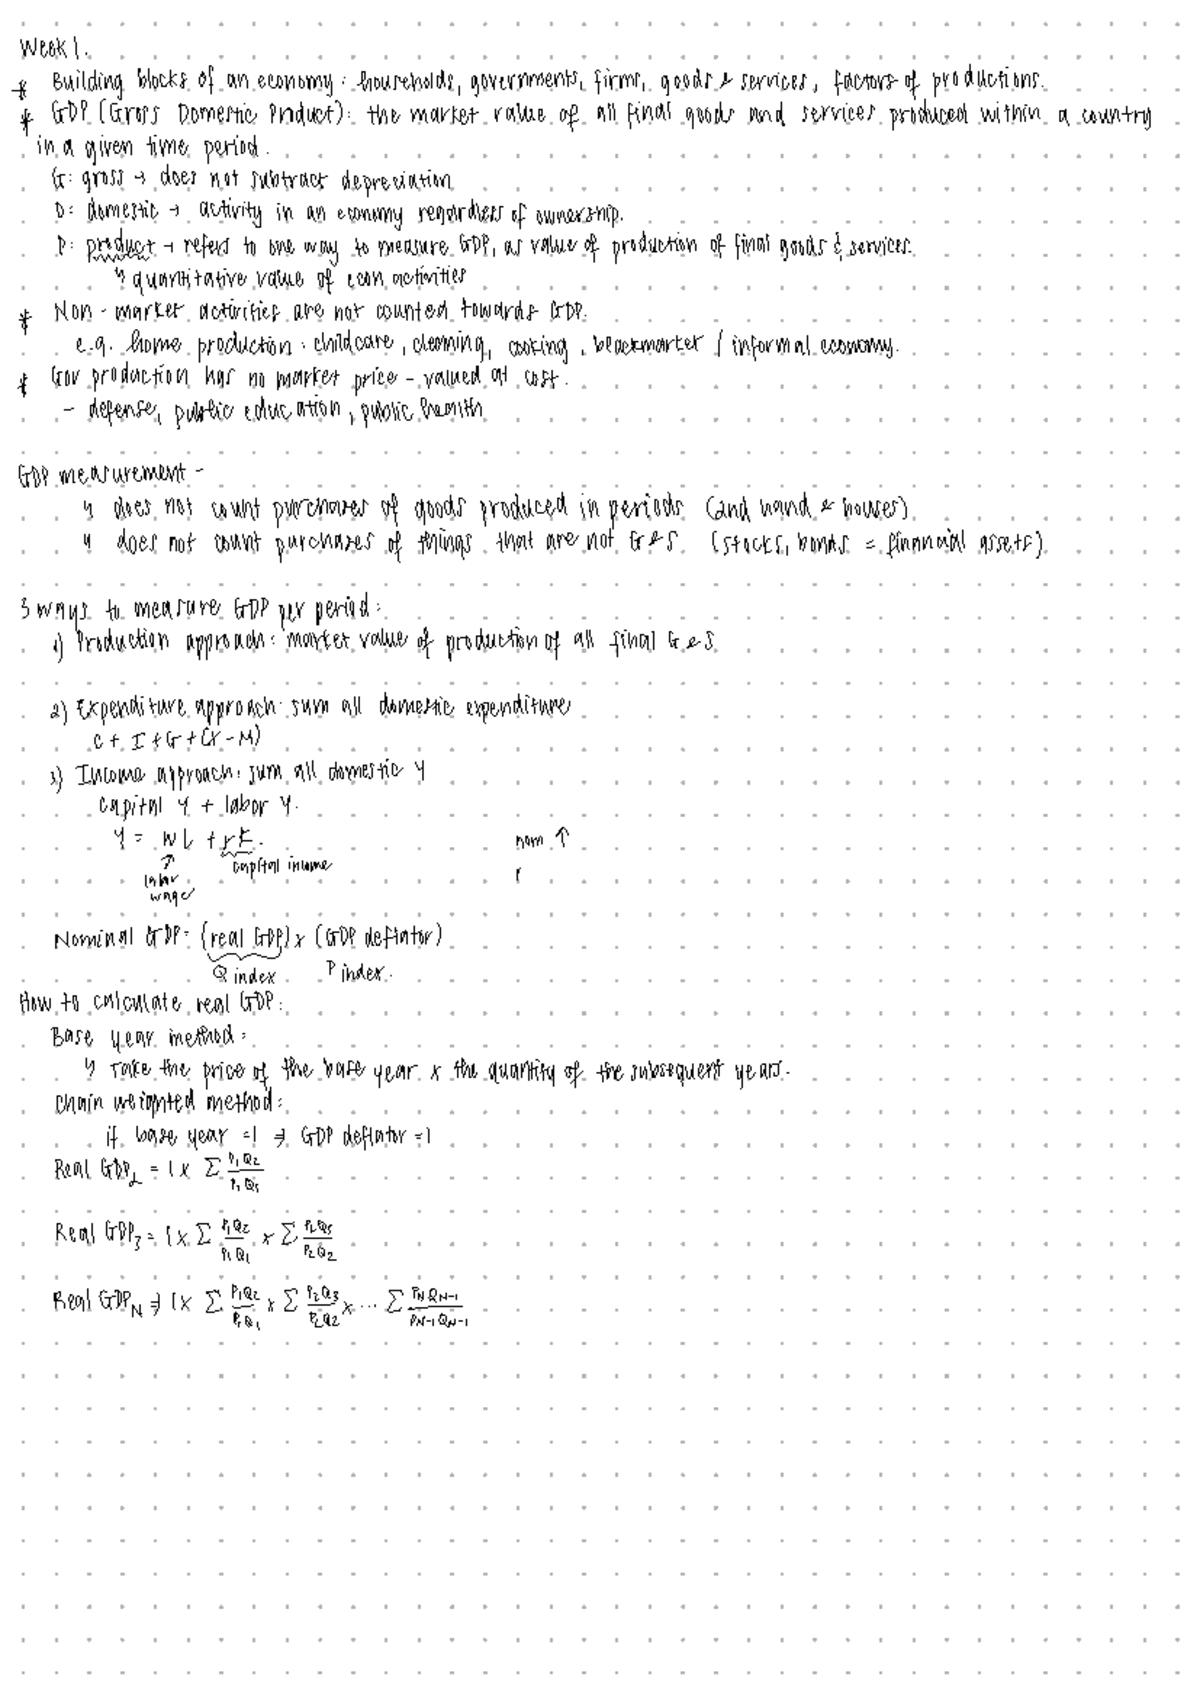 Week 1.
* Building blocks of an economy: households, governments, firms, goods & services, factors of productions.
* GDP (Gross Domestic Product): the market value of all final goods and services produced within a country
in a given time period.
G: gross → does not subtract depreciation
D: domestic → activity in an economy regardless of ownership.
P: product → refers to one way to measure GDP, as value of production of final goods & services.
↳ quantitative value of econ activities
* Non-market activities are not counted towards GDP.
e.g. home production: childcare, cleaning, cooking, blackmarket / informal economy.
* Gov production has no market price - valued at cost.
- defense, public education, public health
GDP measurement -
↳ does not count purchases of goods produced in periods (2nd hand & houses)
↳ does not count purchases of things that are not G&S. (stocks, bonds = financial assets)
3 ways to measure GDP per period:
1) Production approach: market value of production of all final G&S
2) Expenditure approach: sum all domestic expenditure
C + I + G + (X - M)
3) Income approach: sum all domestic Y
capital Y + labor Y.
Y = wL + rK. nom ↑
↑ capital income
labor r
wage
Nominal GDP = (real GDP) x (GDP deflator)
Q index P index.
How to calculate real GDP:
Base year method:
↳ Take the price of the base year x the quantity of the subsequent years.
Chain weighted method:
if base year = 1 → GDP deflator = 1
Real GDP₂ = 1 x Σ P₁Q₂ / P₁Q₁
Real GDP₃ = 1 x Σ P₁Q₂ / P₁Q₁ x Σ P₂Q₃ / P₂Q₂
Real GDP_N ⇒ 1 x Σ P₁Q₂ / P₁Q₁ x Σ P₂Q₃ / P₂Q₂ x ... Σ P_N Q_N-1 / P_N-1 Q_N-1